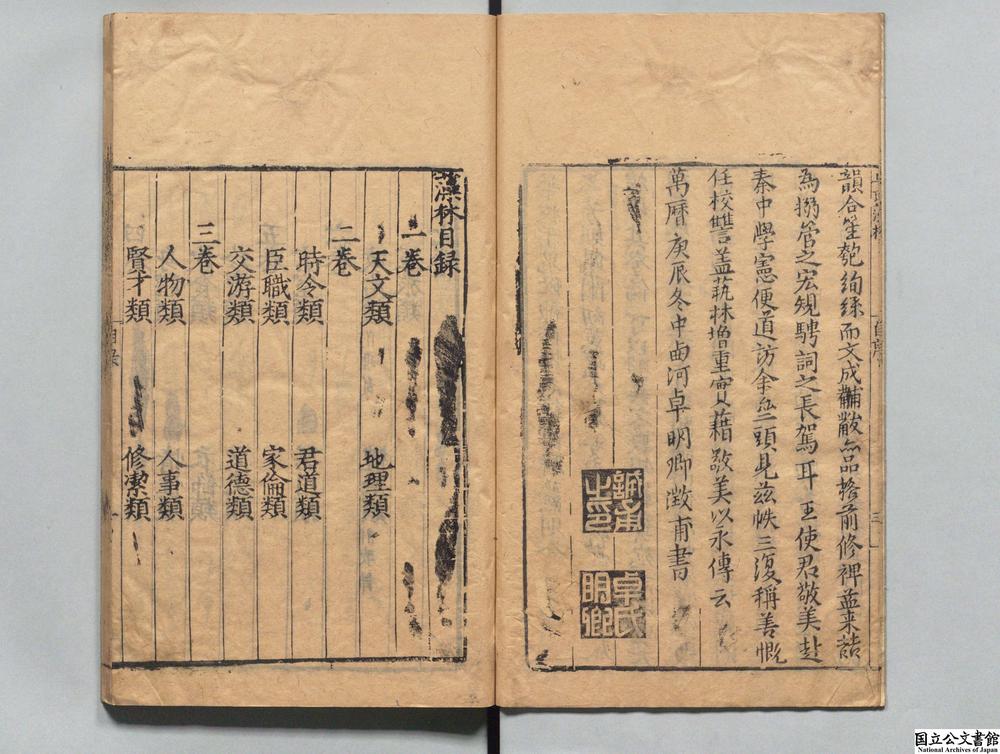 韻合笙匏絢絲而文成黼黻品格前修裨益来喆
為搦管之宏規騁詞之長駕耳王使君敬美赴
秦中學憲便道訪余頭見茲帙三復稱善慨
任校讐蓋蓺林增重寶藉敬美以永傳云
萬曆庚辰冬中卤河卓明卿澂甫書
澂甫之印
卓氏明卿
三
藻林目録
一卷
天文類 地理類
二卷
時令類 君道類
臣職類 家倫類
交游類 道德類
三卷
人物類 人事類
賢才類 修潔類
目录
一
国立公文書館
National Archives of Japan